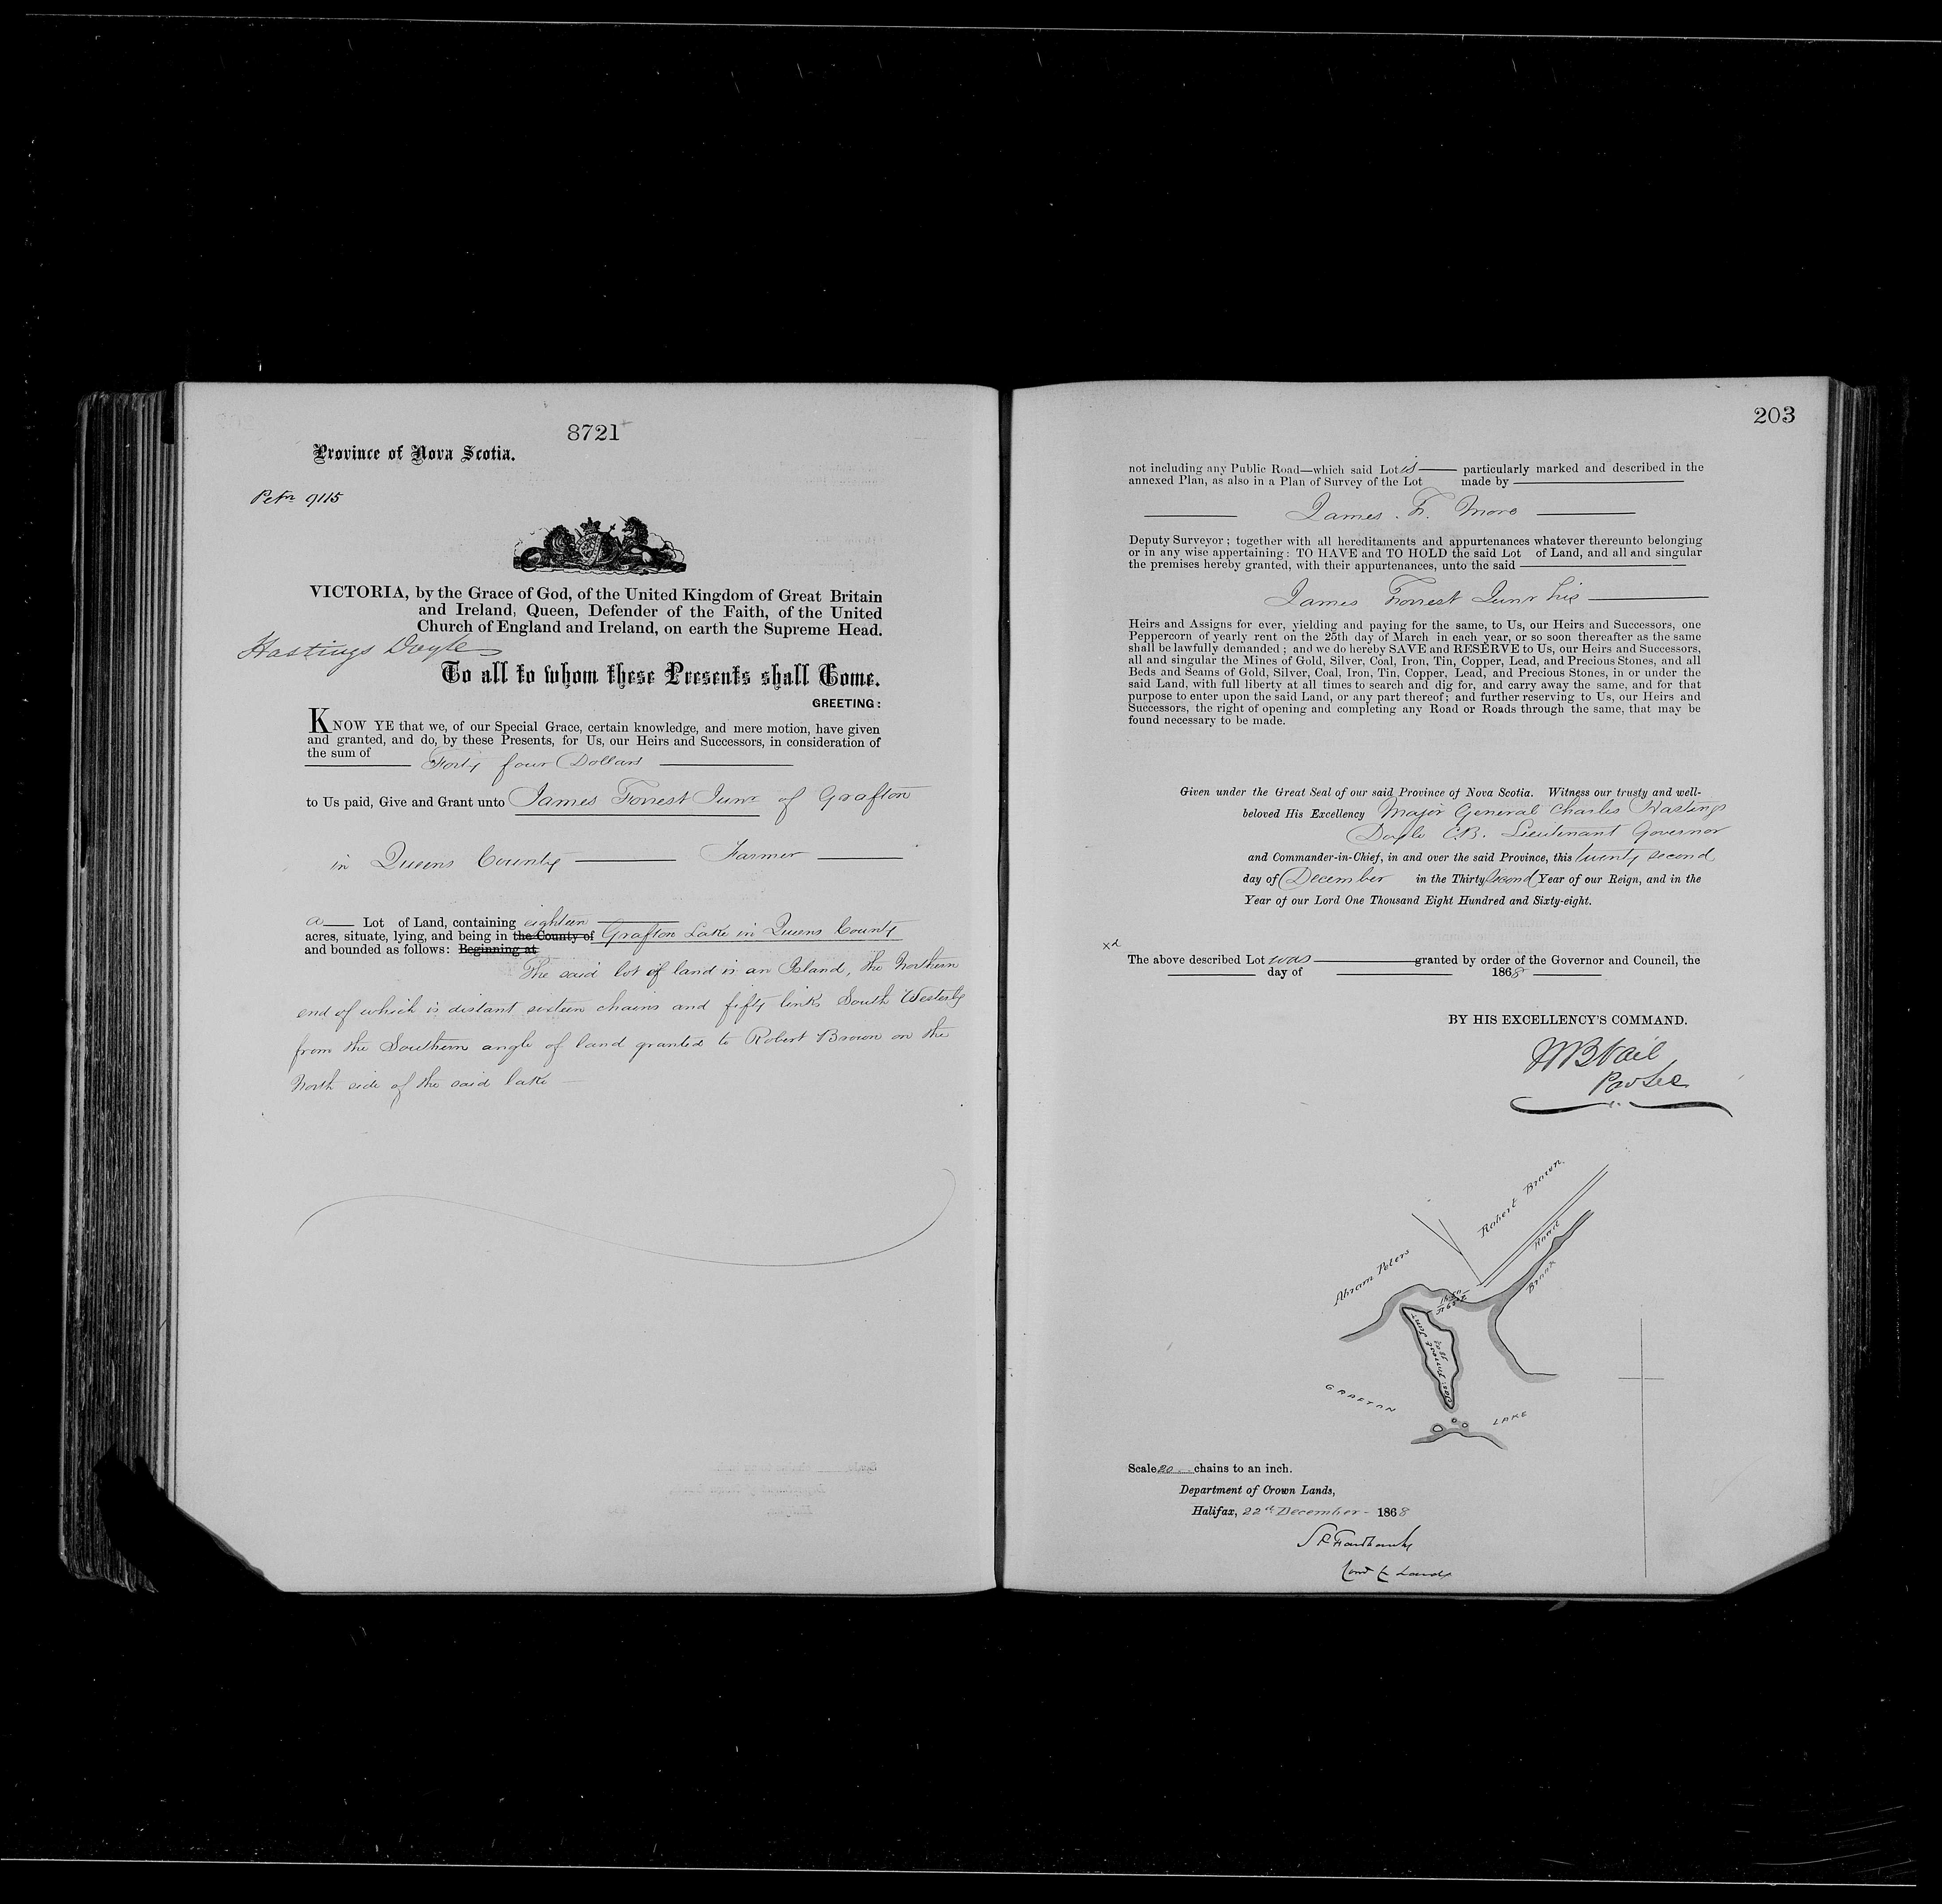 8721
Province of Nova Scotia.
Petn 9115
VICTORIA, by the Grace of God, of the United Kingdom of Great Britain
and Ireland, Queen, Defender of the Faith, of the United
Church of England and Ireland, on earth the Supreme Head.
Hastings Doyle
To all to whom these Presents shall Come.
GREETING:
KNOW YE that we, of our Special Grace, certain knowledge, and mere motion, have given
and granted, and do, by these Presents, for Us, our Heirs and Successors, in consideration of
the sum of
Forty four Dollars
to Us paid, Give and Grant unto James Forrest Junr of Grafton
in Queens County Farmer
a Lot of Land, containing eighteen
acres, situate, lying, and being in the County of Grafton Lake in Queens County
and bounded as follows: Beginning at
The said lot of land is an Island, the Northern
end of which is distant sixteen chains and fifty links South Westerly
from the Southern angle of land granted to Robert Brown on the
North side of the said lake
203
not including any Public Road—which said Lot is particularly marked and described in the
annexed Plan, as also in a Plan of Survey of the Lot made by
James. F. More
Deputy Surveyor; together with all hereditaments and appurtenances whatever thereunto belonging
or in any wise appertaining: TO HAVE and TO HOLD the said Lot of Land, and all and singular
the premises hereby granted, with their appurtenances, unto the said
James Forrest Junr his
Heirs and Assigns for ever, yielding and paying for the same, to Us, our Heirs and Successors, one
Peppercorn of yearly rent on the 25th day of March in each year, or so soon thereafter as the same
shall be lawfully demanded; and we do hereby SAVE and RESERVE to Us, our Heirs and Successors,
all and singular the Mines of Gold, Silver, Coal, Iron, Tin, Copper, Lead, and Precious Stones, and all
Beds and Seams of Gold, Silver, Coal, Iron, Tin, Copper, Lead, and Precious Stones, in or under the
said Land, with full liberty at all times to search and dig for, and carry away the same, and for that
purpose to enter upon the said Land, or any part thereof; and further reserving to Us, our Heirs and
Successors, the right of opening and completing any Road or Roads through the same, that may be
found necessary to be made.
Given under the Great Seal of our said Province of Nova Scotia. Witness our trusty and well-
beloved His Excellency Major General Charles Hastings
Doyle C.B. Lieutenant Governor
and Commander-in-Chief, in and over the said Province, this twenty second
day of December in the Thirty Second Year of our Reign, and in the
Year of our Lord One Thousand Eight Hundred and Sixty-eight.
xd
The above described Lot was granted by order of the Governor and Council, the
day of 1868
BY HIS EXCELLENCY'S COMMAND.
WB Vail
Pro Sec
Robert Brown
Road
Abram Peters
Brook
Jas: Forrest Junr
18 ac
GRAFTON
LAKE
Scale 20 chains to an inch.
Department of Crown Lands,
Halifax, 22nd December - 1868
S P Fairbanks
Com Cr Lands